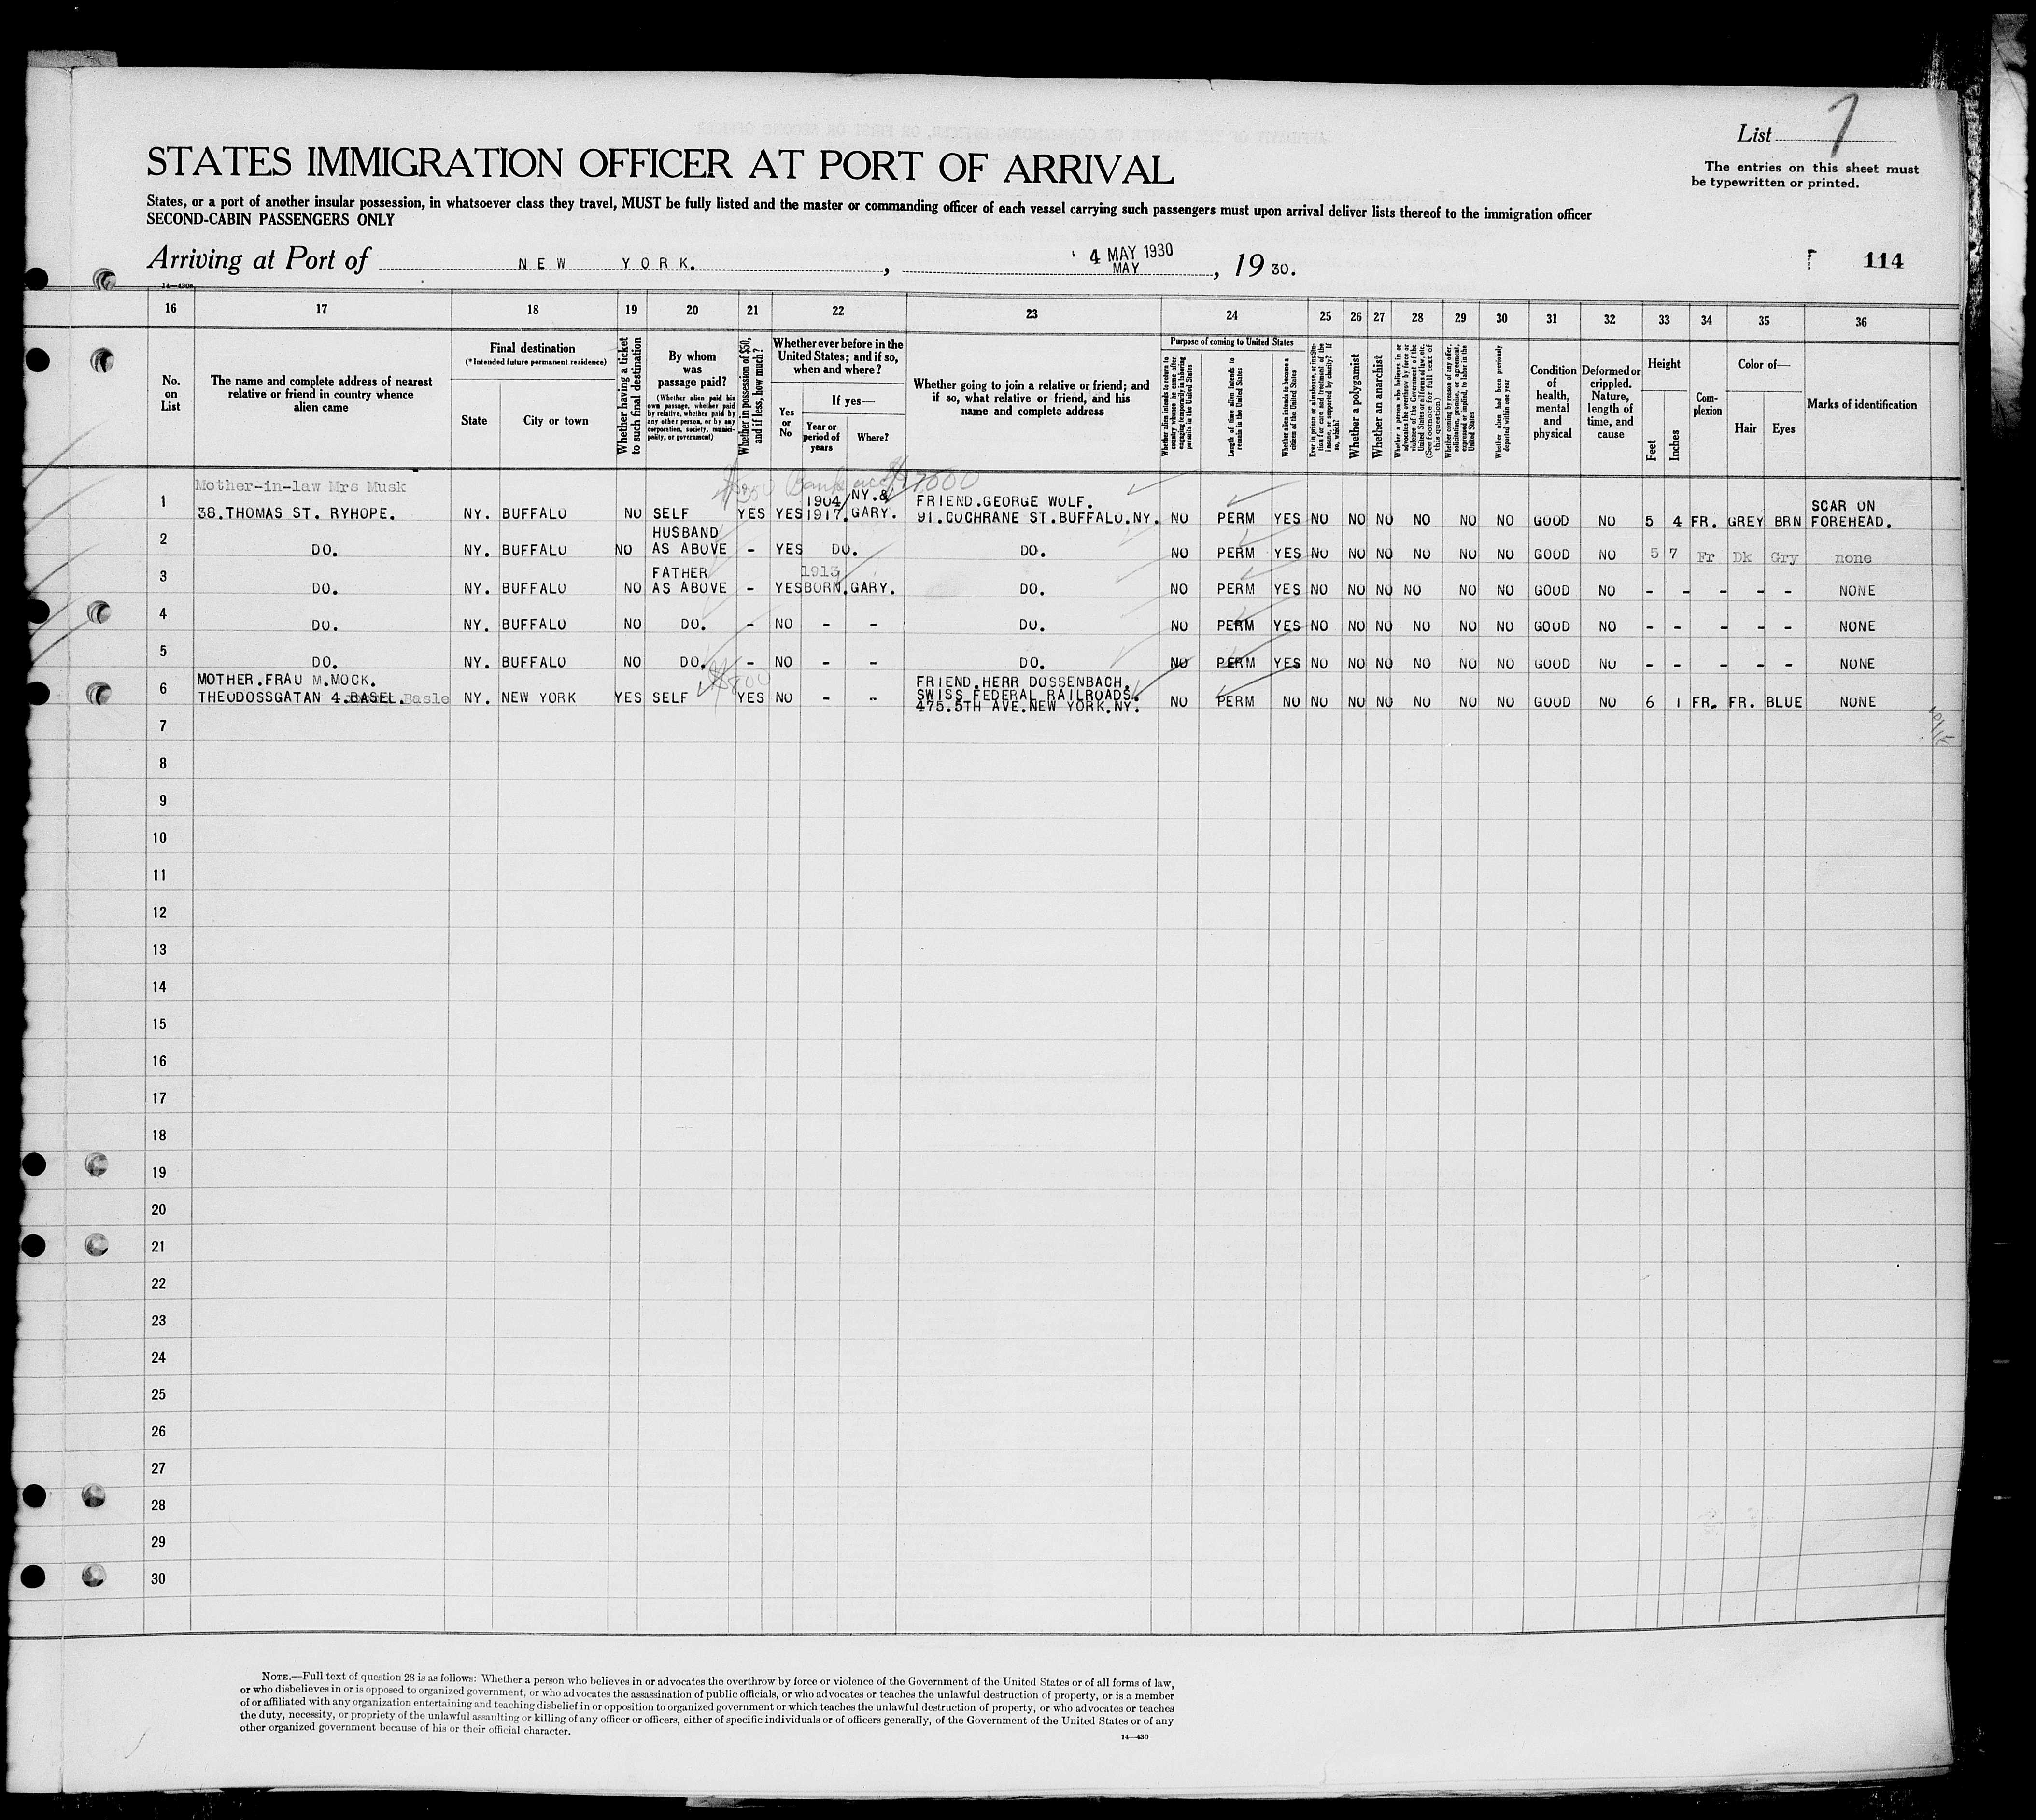 List 7
The entries on this sheet must
be typewritten or printed.
STATES IMMIGRATION OFFICER AT PORT OF ARRIVAL
States, or a port of another insular possession, in whatsoever class they travel, MUST be fully listed and the master or commanding officer of each vessel carrying such passengers must upon arrival deliver lists thereof to the immigration officer
SECOND-CABIN PASSENGERS ONLY
Arriving at Port of NEW YORK. , 4 MAY 1930 MAY , 19 30. 114
14—430a
16 17 18 19 20 21 22 23 24 25 26 27 28 29 30 31 32 33 34 35 36
No. on List
The name and complete address of nearest relative or friend in country whence alien came
Final destination (*Intended future permanent residence)
State
City or town
Whether having a ticket to such final destination
By whom was passage paid? (Whether alien paid his own passage, whether paid by relative, whether paid by any other person, or by any corporation, society, municipality, or government)
Whether in possession of $50, and if less, how much?
Whether ever before in the United States; and if so, when and where?
Yes or No
If yes—
Year or period of years
Where?
Whether going to join a relative or friend; and if so, what relative or friend, and his name and complete address
Purpose of coming to United States
Whether alien intends to return to country whence he came after engaging temporarily in laboring pursuits in the United States
Length of time alien intends to remain in the United States
Whether alien intends to become a citizen of the United States
Ever in prison or almshouse, or institution for care and treatment of the insane, or supported by charity? If so, which?
Whether a polygamist
Whether an anarchist
Whether a person who believes in or advocates the overthrow by force or violence of the Government of the United States or all forms of law, etc. (See footnote for full text of this question)
Whether coming by reason of any offer, solicitation, promise, or agreement, expressed or implied, to labor in the United States
Whether alien had been previously deported within one year
Condition of health, mental and physical
Deformed or crippled. Nature, length of time, and cause
Height
Feet
Inches
Complexion
Color of—
Hair
Eyes
Marks of identification
Mother-in-law Mrs Musk
1 38.THOMAS ST. RYHOPE. NY. BUFFALO NO SELF YES YES 1904 1917. NY.& GARY. FRIEND.GEORGE WOLF. 91.COCHRANE ST.BUFFALO.NY. NO PERM YES NO NO NO NO NO NO GOOD NO 5 4 FR. GREY BRN SCAR ON FOREHEAD.
2 DO. NY. BUFFALO NO HUSBAND AS ABOVE - YES DO. DO. NO PERM YES NO NO NO NO NO NO GOOD NO 5 7 Fr Dk Gry none
3 DO. NY. BUFFALO NO FATHER AS ABOVE - YES 1913 BORN. GARY. DO. NO PERM YES NO NO NO NO NO NO GOOD NO - - - - - NONE
4 DO. NY. BUFFALO NO DO. - NO - - DO. NO PERM YES NO NO NO NO NO NO GOOD NO - - - - - NONE
5 DO. NY. BUFFALO NO DO. - NO - - DO. NO PERM YES NO NO NO NO NO NO GOOD NO - - - - - NONE
6 MOTHER.FRAU M.MOCK. THEODOSSGATAN 4.BASEL. Basle NY. NEW YORK YES SELF YES NO - - FRIEND.HERR DOSSENBACH. SWISS FEDERAL RAILROADS. 475.5TH AVE.NEW YORK.NY. NO PERM NO NO NO NO NO NO NO GOOD NO 6 1 FR. FR. BLUE NONE
7
8
9
10
11
12
13
14
15
16
17
18
19
20
21
22
23
24
25
26
27
28
29
30
NOTE.—Full text of question 28 is as follows: Whether a person who believes in or advocates the overthrow by force or violence of the Government of the United States or of all forms of law,
or who disbelieves in or is opposed to organized government, or who advocates the assassination of public officials, or who advocates or teaches the unlawful destruction of property, or is a member
of or affiliated with any organization entertaining and teaching disbelief in or opposition to organized government or which teaches the unlawful destruction of property, or who advocates or teaches
the duty, necessity, or propriety of the unlawful assaulting or killing of any officer or officers, either of specific individuals or of officers generally, of the Government of the United States or of any
other organized government because of his or their official character.
14—430